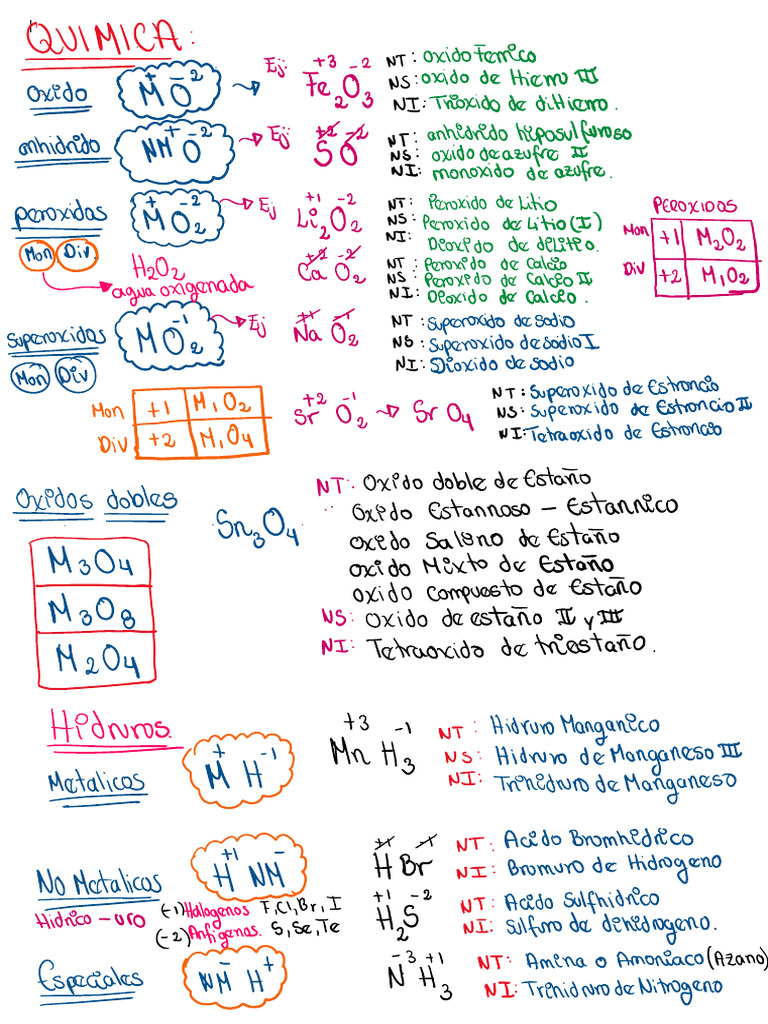 QUIMICA:
Oxido
M⁺O⁻²
Ej:
+3 -2
Fe₂O₃
NT: oxido Ferrico
NS: oxido de Hierro III
NI: Trioxido de diHierro.
anhidrido
NM⁺O⁻²
Ej:
+2 -2
SO
NT: anhidrido hiposulfuroso
NS: oxido de azufre II
NI: monoxido de azufre.
peroxidos
Mon Div
M⁺O₂⁻²
Ej
+1 -2
Li₂O₂
NT: Peroxido de Litio
NS: Peroxido de Litio (I)
NI: Dioxido de dilitio.
H₂O₂
agua oxigenada
+2 -2
CaO₂
NT: Peroxido de Calcio
NS: Peroxido de Calcio II
NI: Dioxido de Calcio.
PEROXIDOS
Mon +1 M₂O₂
Div +2 M₁O₂
superoxidos
Mon Div
M⁺O₂⁻¹
Ej
+1 -1
Na O₂
NT: Superoxido de sodio
NS: Superoxido de sodio I
NI: Dioxido de sodio
Mon +1 M₁O₂
Div +2 M₁O₄
+2 -1
Sr O₂ → Sr O₄
NT: Superoxido de Estroncio
NS: Superoxido de Estroncio II
NI: Tetraoxido de Estroncio
Oxidos dobles
M₃O₄
M₃O₈
M₂O₄
Sn₃O₄
NT: Oxido doble de Estaño
Oxido Estannoso - Estannico
oxido Salino de Estaño
oxido Mixto de Estaño
oxido compuesto de Estaño
NS: Oxido de estaño II y III
NI: Tetraoxido de triestaño.
Hidruros
Metalicos
M⁺ H⁻¹
+3 -1
Mn H₃
NT: Hidruro Manganico
NS: Hidruro de Manganeso III
NI: Trihidruro de Manganeso
No Metalicos
Hidrico - uro
H⁺¹ NM⁻
(-1) Halogenos F, Cl, Br, I
(-2) Anfigenos. S, Se, Te
+1 -1
H Br
NT: Acido Bromhidrico
NI: Bromuro de Hidrogeno
+1 -2
H₂S
NT: Acido Sulfhidrico
NI: Sulfuro de dihidrogeno.
Especiales
NM⁻ H⁺
-3 +1
N H₃
NT: Amina o Amoniaco (Azano)
NI: Trihidruro de Nitrogeno